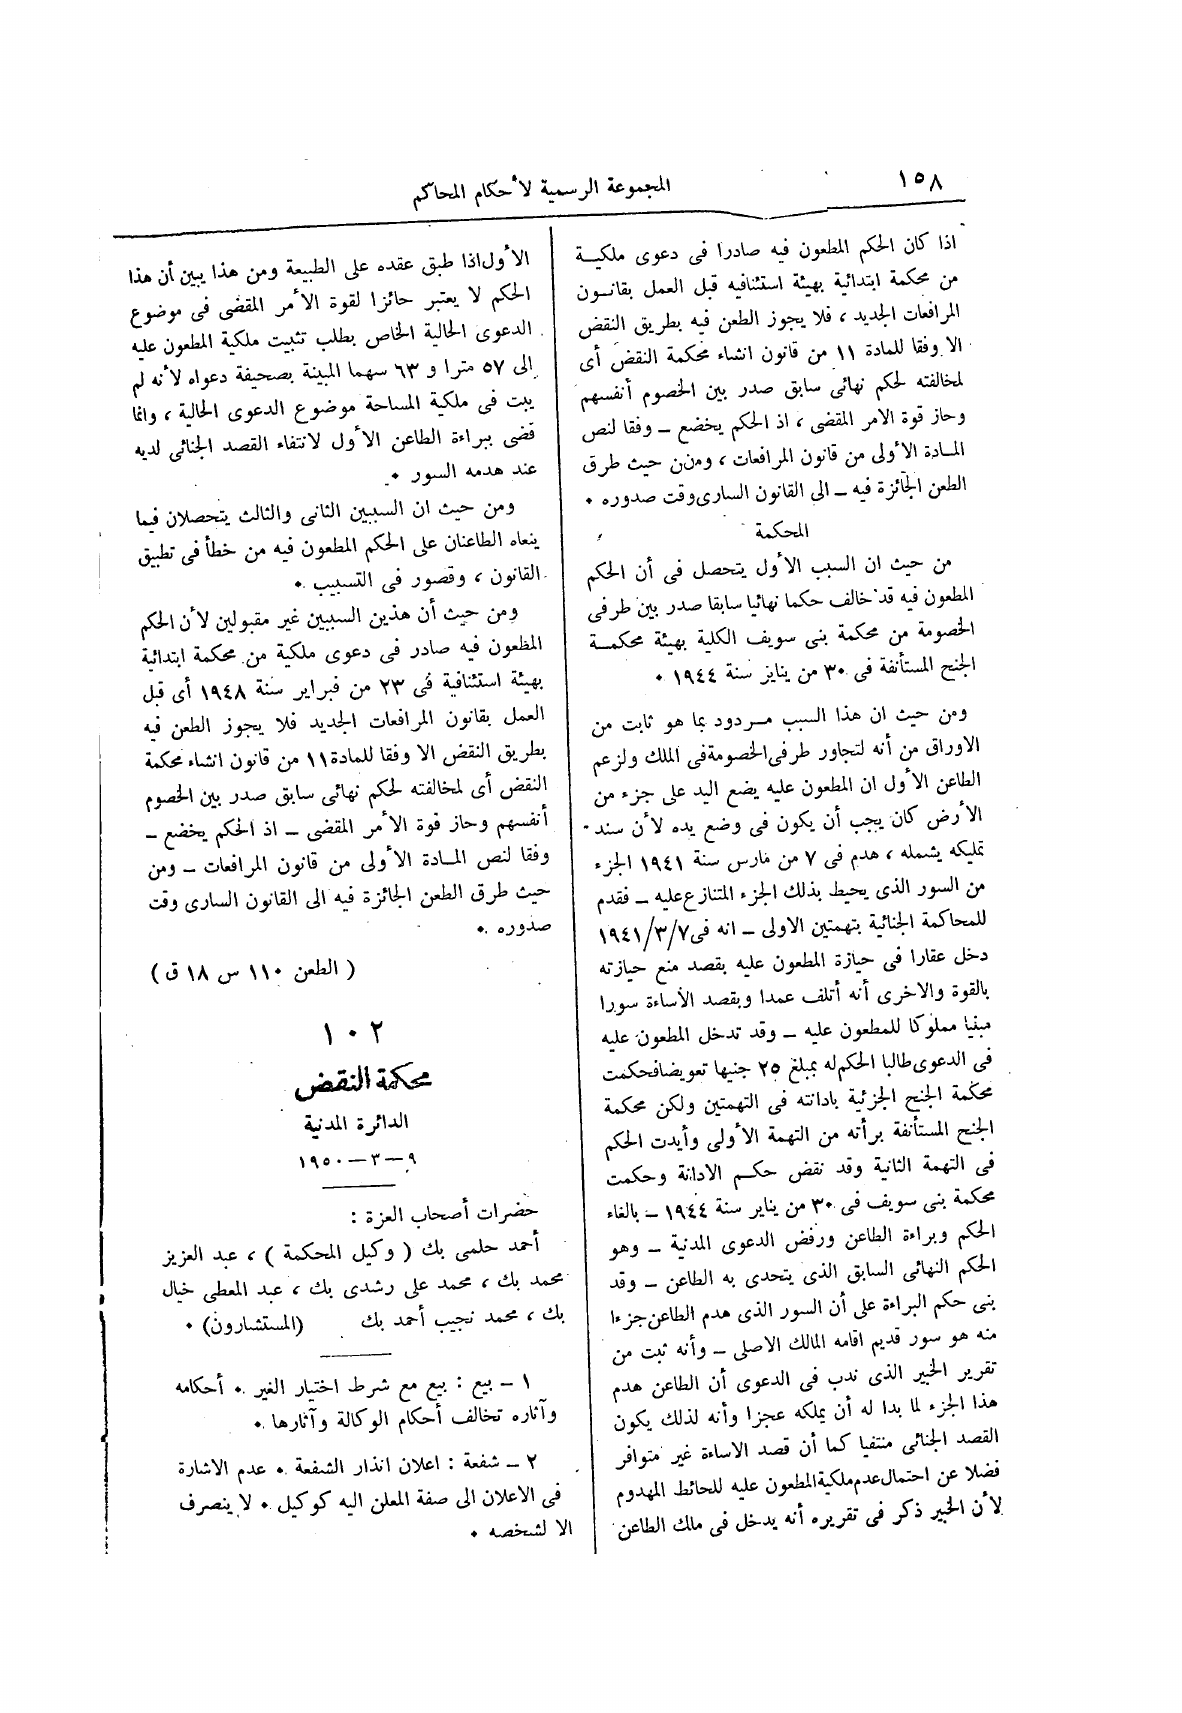 ١٥٨
المجموعة الرسمية لأحكام المحاكم
اذا كان الحكم المطعون فيه صادرا فى دعوى ملكيـة
من محكمة ابتدائية بهيئة استئنافيه قبل العمل بقانـون
المرافعات الجديد ، فلا يجوز الطعن فيه بطريق النقض
الا وفقا للمادة ١١ من قانون انشاء محكمة النقض أى
لمخالفته لحكم نهائى سابق صدر بين الخصوم أنفسهم
وحاز قوة الامر المقضى ، اذ الحكم يخضع ــ وفقا لنص
المـادة الأولى من قانون المرافعات ، ومن حيث طرق
الطعن الجائزة فيه ــ الى القانون السارى وقت صدوره ٠
المحكمة
من حيث ان السبب الأول يتحصل فى أن الحكم
المطعون فيه قد خالف حكما نهائيا سابقا صدر بين طرفى
الخصومة من محكمة بنى سويف الكلية بهيئة محكمــة
الجنح المستأنفة فى ٣٠ من يناير سنة ١٩٤٤ ٠
ومن حيث ان هذا السبب مـردود بما هو ثابت من
الاوراق من أنه لتجاور طرفى الخصومة فى الملك ولزعم
الطاعن الأول ان المطعون عليه يضع اليد على جزء من
الأرض كان يجب أن يكون فى وضع يده لأن سند
تمليكه يشمله ، هدم فى ٧ من مارس سنة ١٩٤١ الجزء
من السور الذى يحيط بذلك الجزء المتنازع عليه ــ فقدم
للمحاكمة الجنائية بتهمتين الاولى ــ انه فى ١٩٤١/٣/٧
دخل عقارا فى حيازة المطعون عليه بقصد منع حيازته
بالقوة والاخرى أنه أتلف عمدا وبقصد الأساءة سورا
مبنيا مملوكا للمطعون عليه ــ وقد تدخل المطعون عليه
فى الدعوى طالبا الحكم له بمبلغ ٢٥ جنيها تعويضا فحكمت
محكمة الجنح الجزئية بادانته فى التهمتين ولكن محكمة
الجنح المستأنفة برأته من التهمة الأولى وأيدت الحكم
فى التهمة الثانية وقد نقض حكـم الادانة وحكمت
محكمة بنى سويف فى ٣٠ من يناير سنة ١٩٤٤ ــ بالغاء
الحكم وبراءة الطاعن ورفض الدعوى المدنية ــ وهو
الحكم النهائى السابق الذى يتحدى به الطاعن ــ وقد
بنى حكم البراءة على أن السور الذى هدم الطاعن جزءا
منه هو سور قديم اقامه المالك الاصلى ــ وأنه ثبت من
تقرير الخبير الذى ندب فى الدعوى أن الطاعن هدم
هذا الجزء لما بدا له أن بملكه عجزا وأنه لذلك يكون
القصد الجنائى منتفيا كما أن قصد الاساءة غير متوافر
فضلا عن احتمال عدم ملكية المطعون عليه للحائط المهدوم
لأن الخبير ذكر فى تقريره أنه يدخل فى ملك الطاعن
الأول اذا طبق عقده على الطبيعة ومن هذا يبين أن هذا
الحكم لا يعتبر حائزا لقوة الأمر المقضى فى موضوع
الدعوى الحالية الخاص بطلب تثبيت ملكية المطعون عليه
الى ٥٧ مترا و ٦٣ سهما المبينة بصحيفة دعواه لأنه لم
يبت فى ملكية المساحة موضوع الدعوى الحالية ، وانما
قضى ببراءة الطاعن الأول لانتفاء القصد الجنائى لديه
عند هدمه السور ٠
ومن حيث ان السببين الثانى والثالث يتحصلان فيما
ينعاه الطاعنان على الحكم المطعون فيه من خطأ فى تطبيق
القانون ، وقصور فى التسبيب ٠
ومن حيث أن هذين السببين غير مقبولين لأن الحكم
المطعون فيه صادر فى دعوى ملكية من محكمة ابتدائية
بهيئة استئنافية فى ٢٣ من فبراير سنة ١٩٤٨ أى قبل
العمل بقانون المرافعات الجديد فلا يجوز الطعن فيه
بطريق النقض الا وفقا للمادة ١١ من قانون انشاء محكمة
النقض أى لمخالفته لحكم نهائى سابق صدر بين الخصوم
أنفسهم وحاز قوة الأمر المقضى ــ اذ الحكم يخضع ــ
وفقا لنص المـادة الأولى من قانون المرافعات ــ ومن
حيث طرق الطعن الجائزة فيه الى القانون السارى وقت
صدوره ٠
( الطعن ١١٠ س ١٨ ق )
١٠٢
محكمة النقض
الدائرة المدنية
٩ ــ ٣ ــ ١٩٥٠
حضرات أصحاب العزة :
أحمد حلمى بك ( وكيل المحكمة ) ، عبد العزيز
محمد بك ، محمد على رشدى بك ، عبد المعطى خيال
بك ، محمد نجيب أحمد بك (المستشارون) ٠
١ ــ بيع : بيع مع شرط اختيار الغير ٠ أحكامه
وآثاره تخالف أحكام الوكالة وآثارها ٠
٢ ــ شفعة : اعلان انذار الشفعة ٠ عدم الاشارة
فى الاعلان الى صفة المعلن اليه كوكيل ٠ لا ينصرف
الا لشخصه ٠